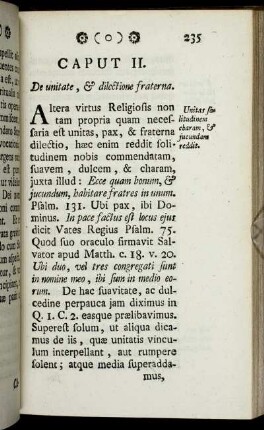 (o) 235
CAPUT II.
De unitate, & dilectione fraterna.
Altera virtus Religiosis non
tam propria quam neces-
saria est unitas, pax, & fraterna
dilectio, hæc enim reddit soli-
tudinem nobis commendatam,
suavem, dulcem, & charam,
juxta illud: Ecce quam bonum, &
jucundum, habitare fratres in unum.
Psalm. 131. Ubi pax, ibi Do-
minus. In pace factus est locus ejus
dicit Vates Regius Psalm. 75.
Quod suo oraculo firmavit Sal-
vator apud Matth. c. 18. v. 20.
Ubi duo, vel tres congregati sunt
in nomine meo, ibi sum in medio eo-
rum. De hac suavitate, ac dul-
cedine perpauca jam diximus in
Q. 1. C. 2. easque prælibavimus.
Superest solum, ut aliqua dica-
mus de iis, quæ unitatis vincu-
lum interpellant, aut rumpere
solent; atque media superadda-
mus,
Unitas so-
litudinem
charam, &
jucundam
reddit.